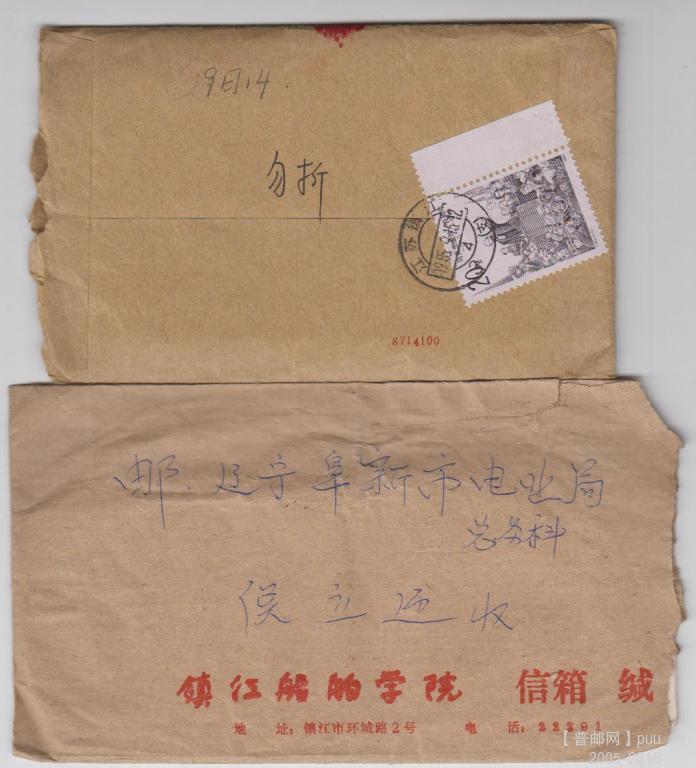 9日14.
勿折
江苏镇江
8714100
邮.辽宁阜新市电业局
总务科
侯立
收
镇江船舶学院 信箱 缄
地 址：镇江市环城路2号 电 话：22391
【普邮网】puu
2005-2018